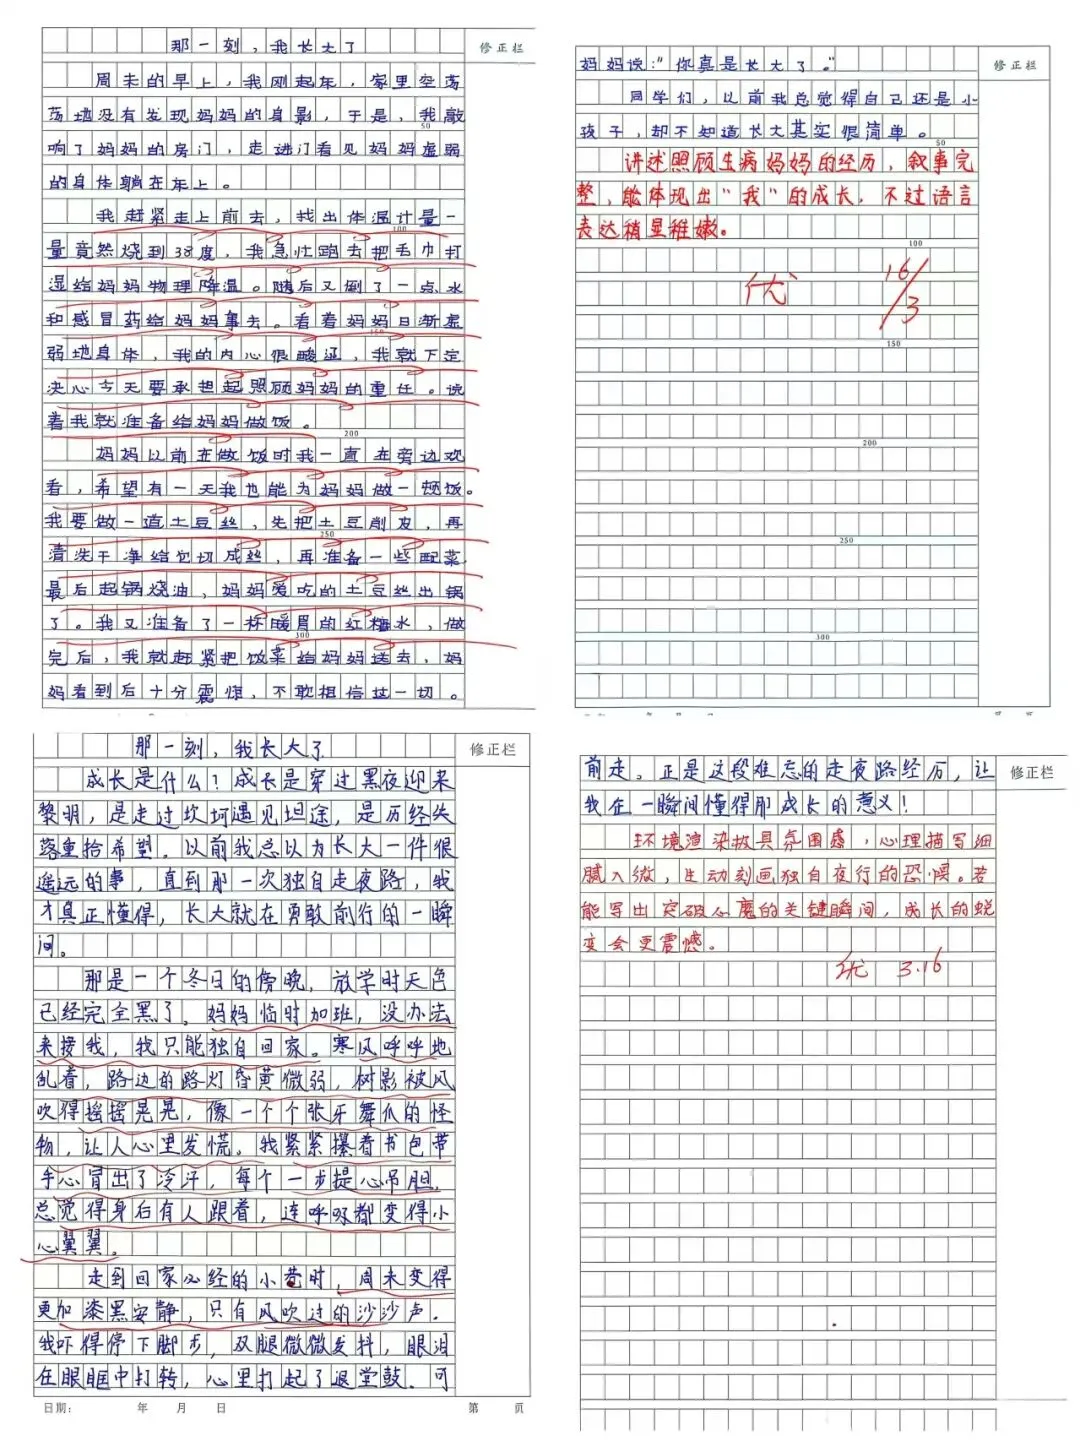 那一刻，我长大了
修正栏
周未的早上，我刚起床，家里空荡
荡地没有发现妈妈的身影，于是，我敲
50
响了妈妈的房门，走进门看见妈妈虚弱
的身体躺在床上。
我赶紧走上前去，找出体温计量一
100
量竟然烧到38度，我急忙跑去把毛巾打
湿给妈妈物理降温。随后又倒了一点水
和感冒药给妈妈拿去。看着妈妈日渐虚
150
弱地身体，我的内心很酸涩，我就下定
决心今天要承担起照顾妈妈的重任。说
着我就准备给妈妈做饭。
200
妈妈以前在做饭时我一直在旁边观
看，希望有一天我也能为妈妈做一顿饭。
我要做一道土豆丝，先把土豆削皮，再
250
清洗干净给它切成丝，再准备一些配菜，
最后起锅烧油，妈妈爱吃的土豆丝出锅
了。我又准备了一杯暖胃的红糖水，做
300
完后，我就赶紧把饭菜给妈妈送去，妈
妈看到后十分震惊，不敢相信这一切。
妈妈说：“你真是长大了。”
修正栏
同学们，以前我总觉得自己还是小
孩子，却不知道长大其实很简单。
50
讲述照顾生病妈妈的经历，叙事完
整，能体现出“我”的成长，不过语言
表达稍显稚嫩。
100
优 16/3
150
200
250
300
那一刻，我长大了
修正栏
成长是什么？成长是穿过黑夜迎来
黎明，是走过坎坷遇见坦途，是历经失
落重拾希望。以前我总以为长大一件很
遥远的事，直到那一次独自走夜路，我
才真正懂得，长大就在勇敢前行的一瞬
间。
那是一个冬日的傍晚，放学时天色
已经完全黑了，妈妈临时加班，没办法
来接我，我只能独自回家。寒风呼呼地
乱着，路边的路灯昏黄微弱，树影被风
吹得摇摇晃晃，像一个个张牙舞爪的怪
物，让人心里发慌。我紧紧攥着书包带
手心冒出了冷汗，每个一步提心吊胆，
总觉得身后有人跟着，连呼吸都变得小
心翼翼。
走到回家必经的小巷时，周未变得
更加漆黑安静，只有风吹过的沙沙声。
我吓得停下脚步，双腿微微发抖，眼泪
在眼眶中打转，心里打起了退堂鼓。可
日期： 年 月 日 第 页
前走。正是这段难忘的走夜路经历，让
修正栏
我在一瞬间懂得那成长的意义！
环境渲染极具氛围感，心理描写细
腻入微，生动刻画独自夜行的恐惧。若
能写出突破心魔的关键瞬间，成长的蜕
变会更震撼。
优 3.16